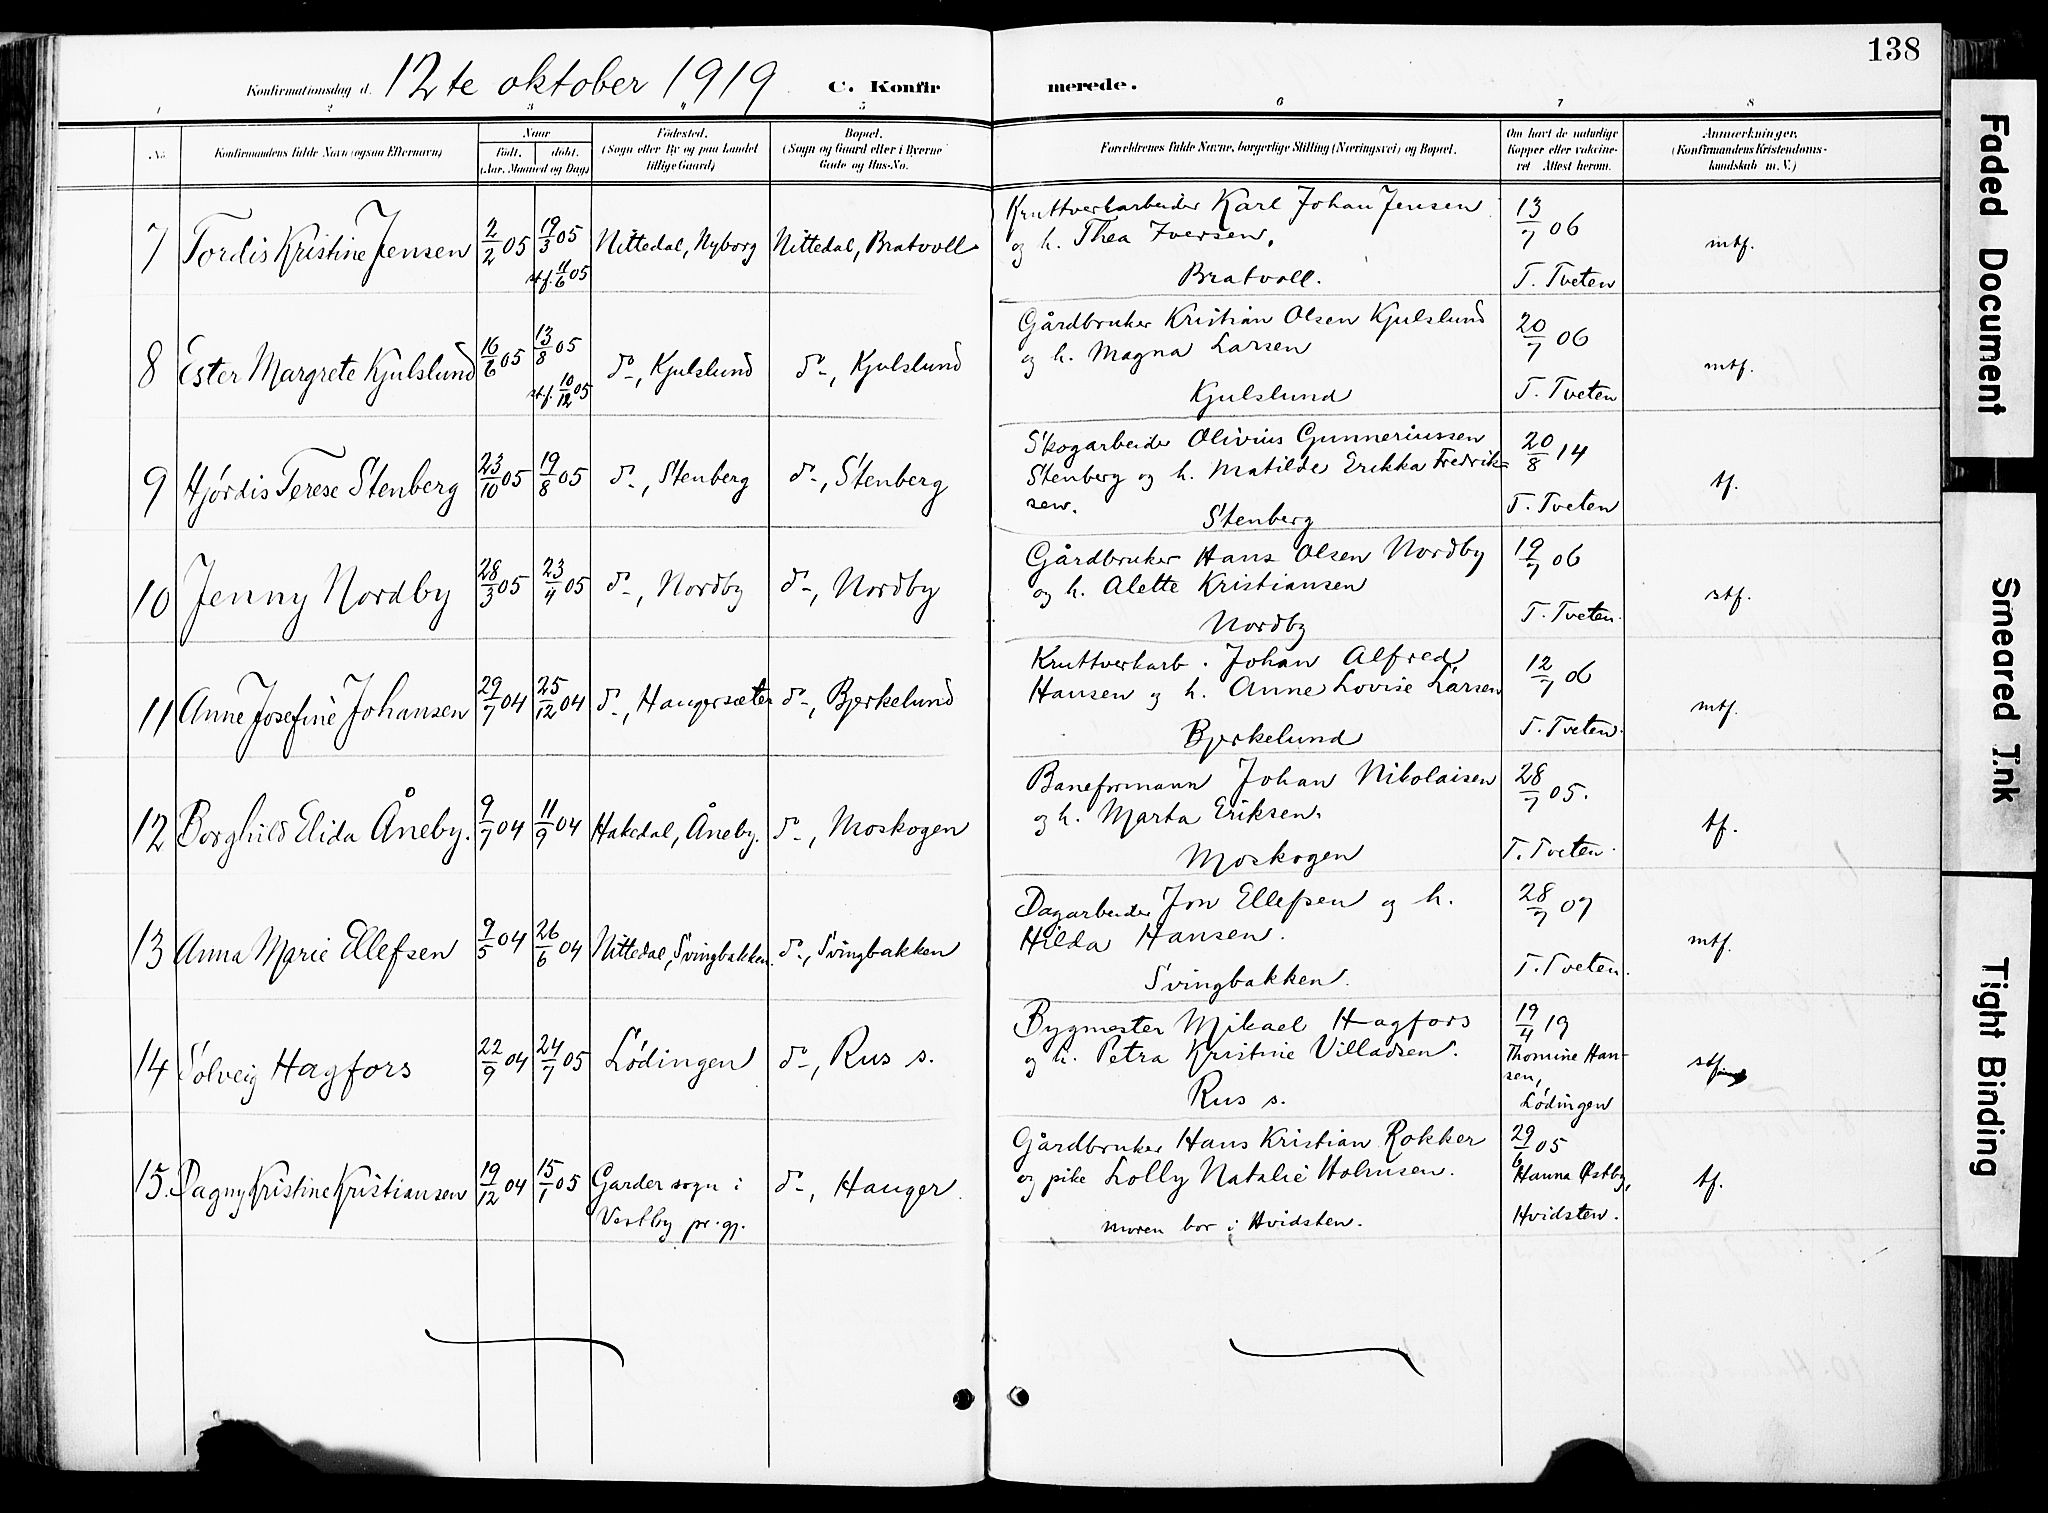 138
Konfirmationsdag d. 12te oktober 1919 C. Konfirmerede.
1 2 3 4 5 6 7 8
No. Konfirmandens fulde Navn (ogsaa Efternavn)
Naar født. døbt. (Aar, Maaned og Dag)
Fødested. (Sogn eller By og paa Landet tillige Gaard)
Bopæl. (Sogn og Gaard eller i Byerne Gade og Hus-No.
Forældrenes fulde Navne, borgerlige Stilling (Næringsvei) og Bopæl.
Om havt de naturlige Kopper eller vakcineret Attest herom.
Anmærkninger, (Konfirmandens Kristendomskundskab m. V.)
7 Tordis Kristine Jensen 2/2 05 19/3 05 st.f. 11/6 05 Nittedal, Nyborg Nittedal, Bratvoll
Kruttverkarbeider Karl Johan Jensen
og h. Thea Iversen,
Bratvoll.
13/7 06
T. Tveten
mtf.
8 Ester Margrete Kjulslund 16/6 05 13/8 05 st.f. 10/12 05 do-, Kjulslund do-, Kjulslund
Gårdbruker Kristian Olsen Kjulslund
og h. Magna Larsen
Kjulslund
20/7 06
T. Tveten
mtf.
9 Hjørdis Terese Stenberg 23/10 05 19/8 05 do-, Stenberg do-, Stenberg
Skogarbeider Olivius Gunneriussen
Stenberg og h. Matilde Erikka Fredrik=
sen.
Stenberg
20/8 14
T. Tveten
tf.
10 Jenny Nordby 28/3 05 23/4 05 do-, Nordby do-, Nordby
Gårdbruker Hans Olsen Nordby
og h. Alette Kristiansen
Nordby
19/7 06
T. Tveten.
stf.
11 Anne Josefine Johansen 29/7 04 25/12 04 do-, Haugersæter do-, Bjerkelund
Kruttverkarb. Johan Alfred
Hansen og h. Anne Lovise Larsen
Bjerkelund
12/7 06
T. Tveten.
mtf.
12 Borghild Elida Åneby. 9/7 04 11/9 04 Hakedal, Åneby. do-, Moskogen
Baneformann Johan Nikolaisen
og h. Marta Eriksen.
Moskogen
28/7 05.
T. Tveten.
tf.
13 Anna Marie Ellefsen 9/5 04 26/6 04 Nittedal, Svingbakken. do-, Svingbakken
Dagarbeider Jon Ellefsen og h.
Hilda Hansen.
Svingbakken.
28/7 07
T. Tveten.
mtf.
14 Solveig Hagfors 22/9 04 24/7 05 Lødingen do-, Rus s.
Bygmester Mikael Hagfors
og h. Petra Kristine Villadsen.
Rus s.
19/4 19
Thomine Han-
sen,
Lødingen
stf
15. Dagny Kristine Kristiansen 19/12 04 15/1 05 Garder sogn i
Vestby pr.gj. do-, Hauger.
Gårdbruker Hans Kristian Rokker
og pike Lolly Natalie Holmsen.
moren bor i Hvidsten.
29/6 05
Hanna Østby,
Hvidsten.
tf.
Faded Document
Smeared Ink
Tight Binding